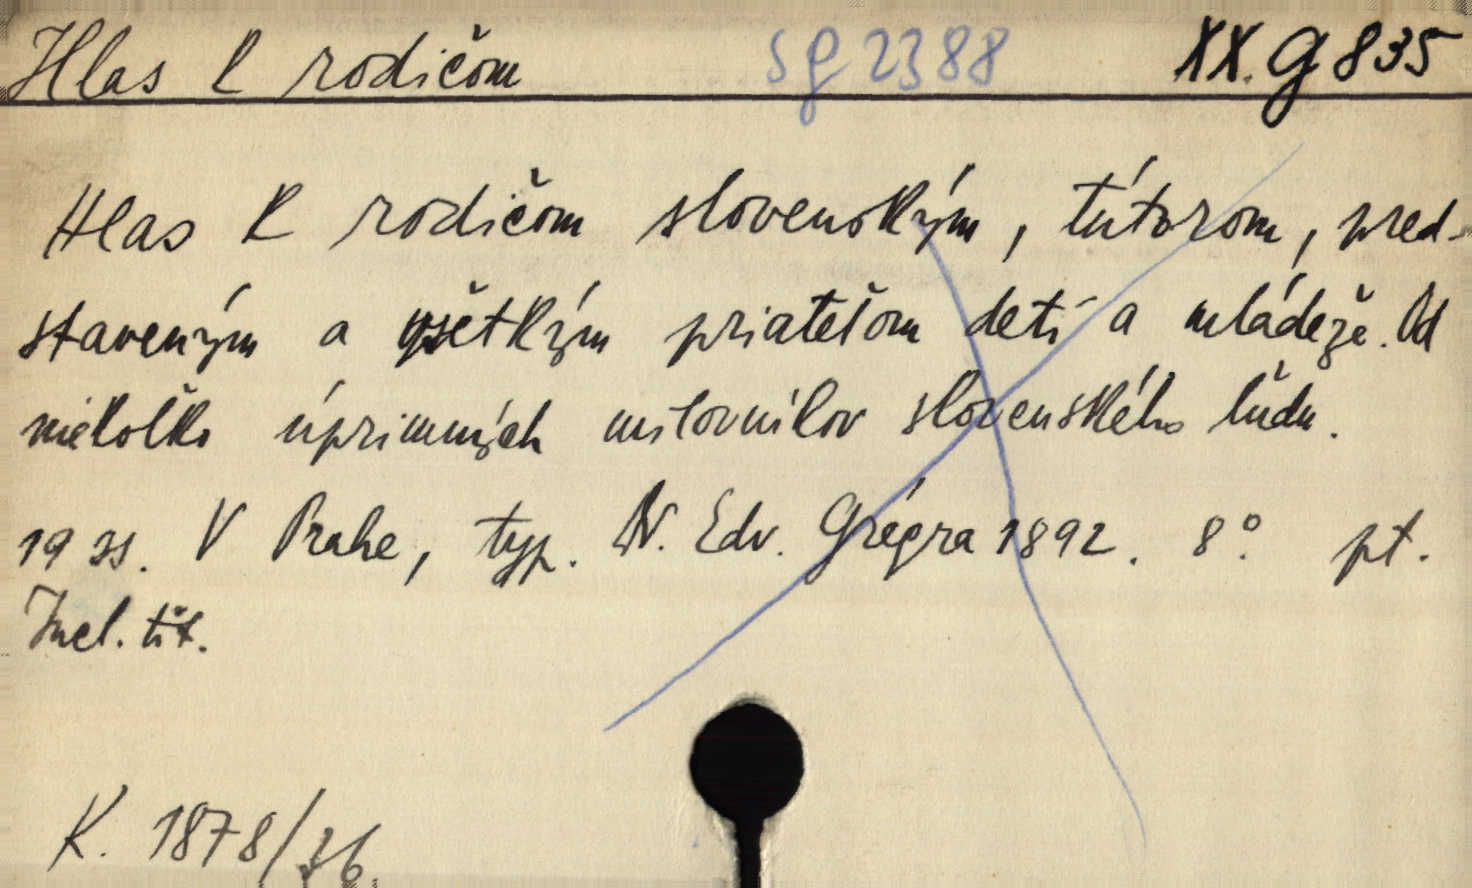 Hlas k rodičom SG 2388 XX. G 835
Hlas k rodičom slovenským, tútorom, pred-
staveným a všetkým priateľom detí a mládeže. Od
niekoľko úprimných milovníkov slovenského ľudu.
19 ss. V Prahe, typ. Dr. Edv. Grégra 1892. 8°. pt.
Incl. tit.
K. 1878/36.